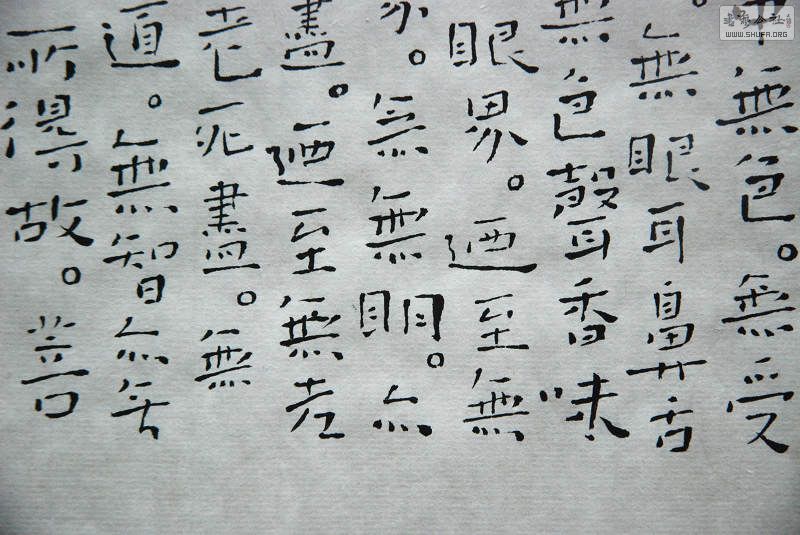 無色。無受
無眼耳鼻舌
無色聲香味
眼界。迺至無
界。無無眀。亦
盡。迺至無老
老死盡。無
道。無智亦无
所得故。菩
公社
WWW.SHUFA.ORG